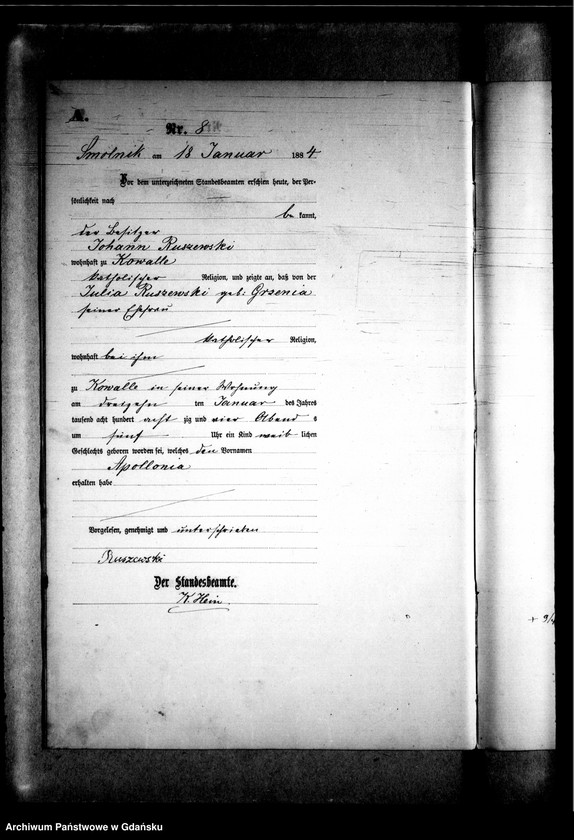 A.
Nr. 8
Smolnik am 18 Januar 1884
Vor dem unterzeichneten Standesbeamten erschien heute, der Per-
sönlichkeit nach
be kannt,
der Besitzer
Johann Ruszewski
wohnhaft zu Kowalle
katholischer Religion, und zeigte an, daß von der
Julia Ruszewski geb: Grzenia
seiner Ehefrau
katholischer Religion,
wohnhaft bei ihm
zu Kowalle in seiner Wohnung
am dreizehn ten Januar des Jahres
tausend acht hundert acht zig und vier Abend s
um fünf Uhr ein Kind weib lichen
Geschlechts geboren worden sei, welches den Vornamen
Apollonia
erhalten habe
Vorgelesen, genehmigt und unterschrieben
Ruszewski
Der Standesbeamte.
K. Hein.
Archiwum Państwowe w Gdańsku